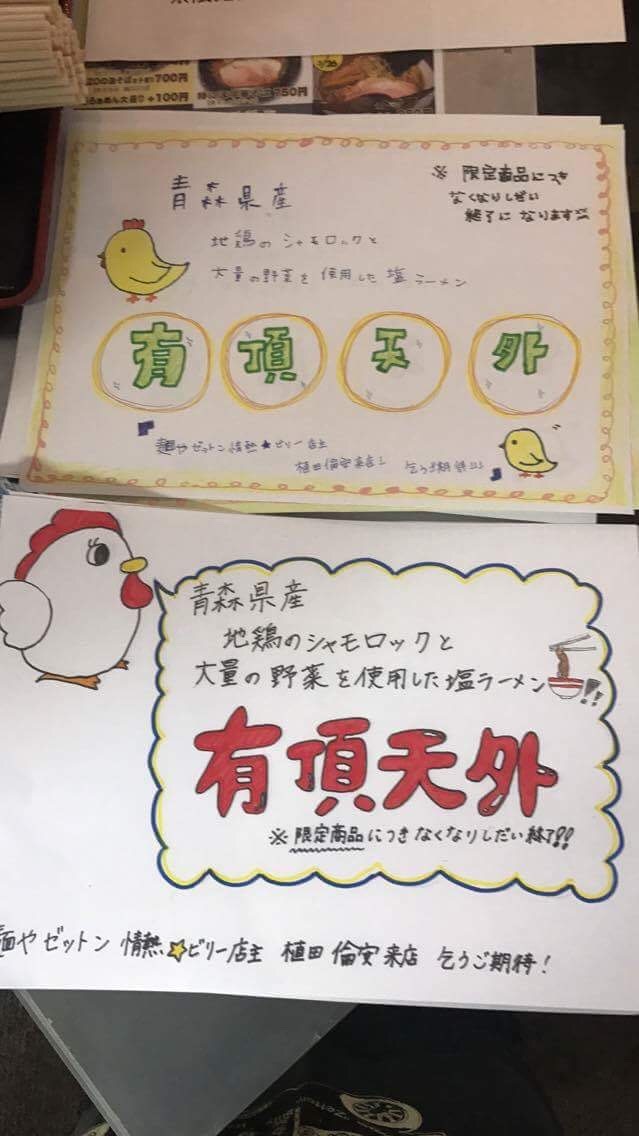 700円
らぁめん大盛り +100円
3/26
青森県産
※ 限定商品につき
なくなりしだい
終了になります
地鶏のシャモロックと
大量の野菜を使用した塩ラーメン
有頂天外
麺やゼットン情熱★ビリー店主
植田倫安来店! 乞うご期待!!!
青森県産
地鶏のシャモロックと
大量の野菜を使用した塩ラーメン!!
有頂天外
※限定商品につきなくなりしだい終了!!
麺やゼットン 情熱☆ビリー店主 植田倫安来店 乞うご期待!